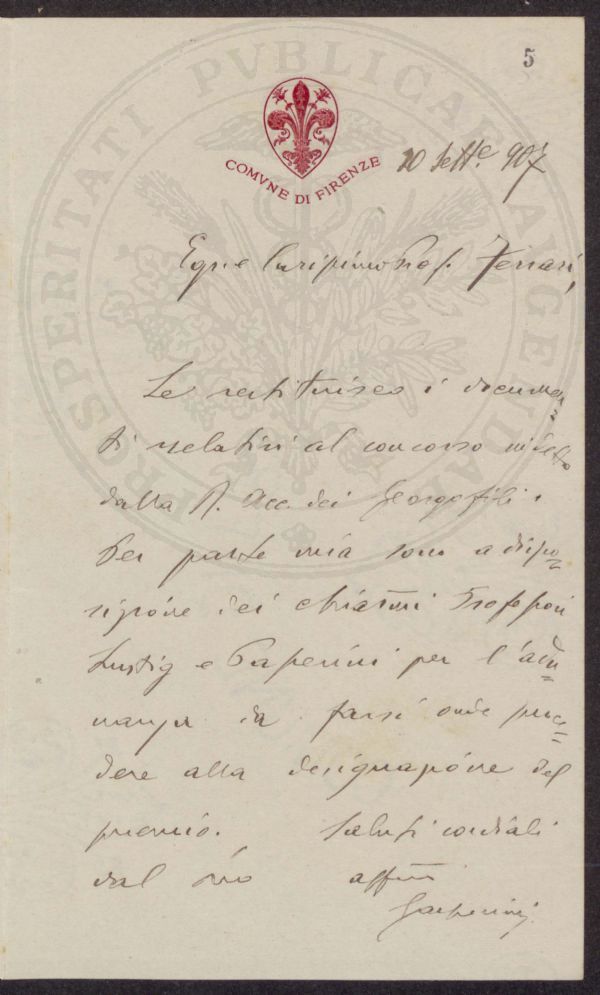 5
PROSPERITATI PVBLICAE AVGENDAE
COMVNE DI FIRENZE
10 Sett.e 907
Egr. e Carissimo Prof. Ferrari,
Le restituisco i documen=
ti relativi al concorso
dalla R. Acc. dei Georgofili.
Per parte mia sono a dispo=
sizione dei chiarmi Professori
Lustig e Paperini per l'adu=
nanza da farsi onde proce=
dere alla designazione del
premio. Saluti cordiali
dal suo affmo
Gasperini